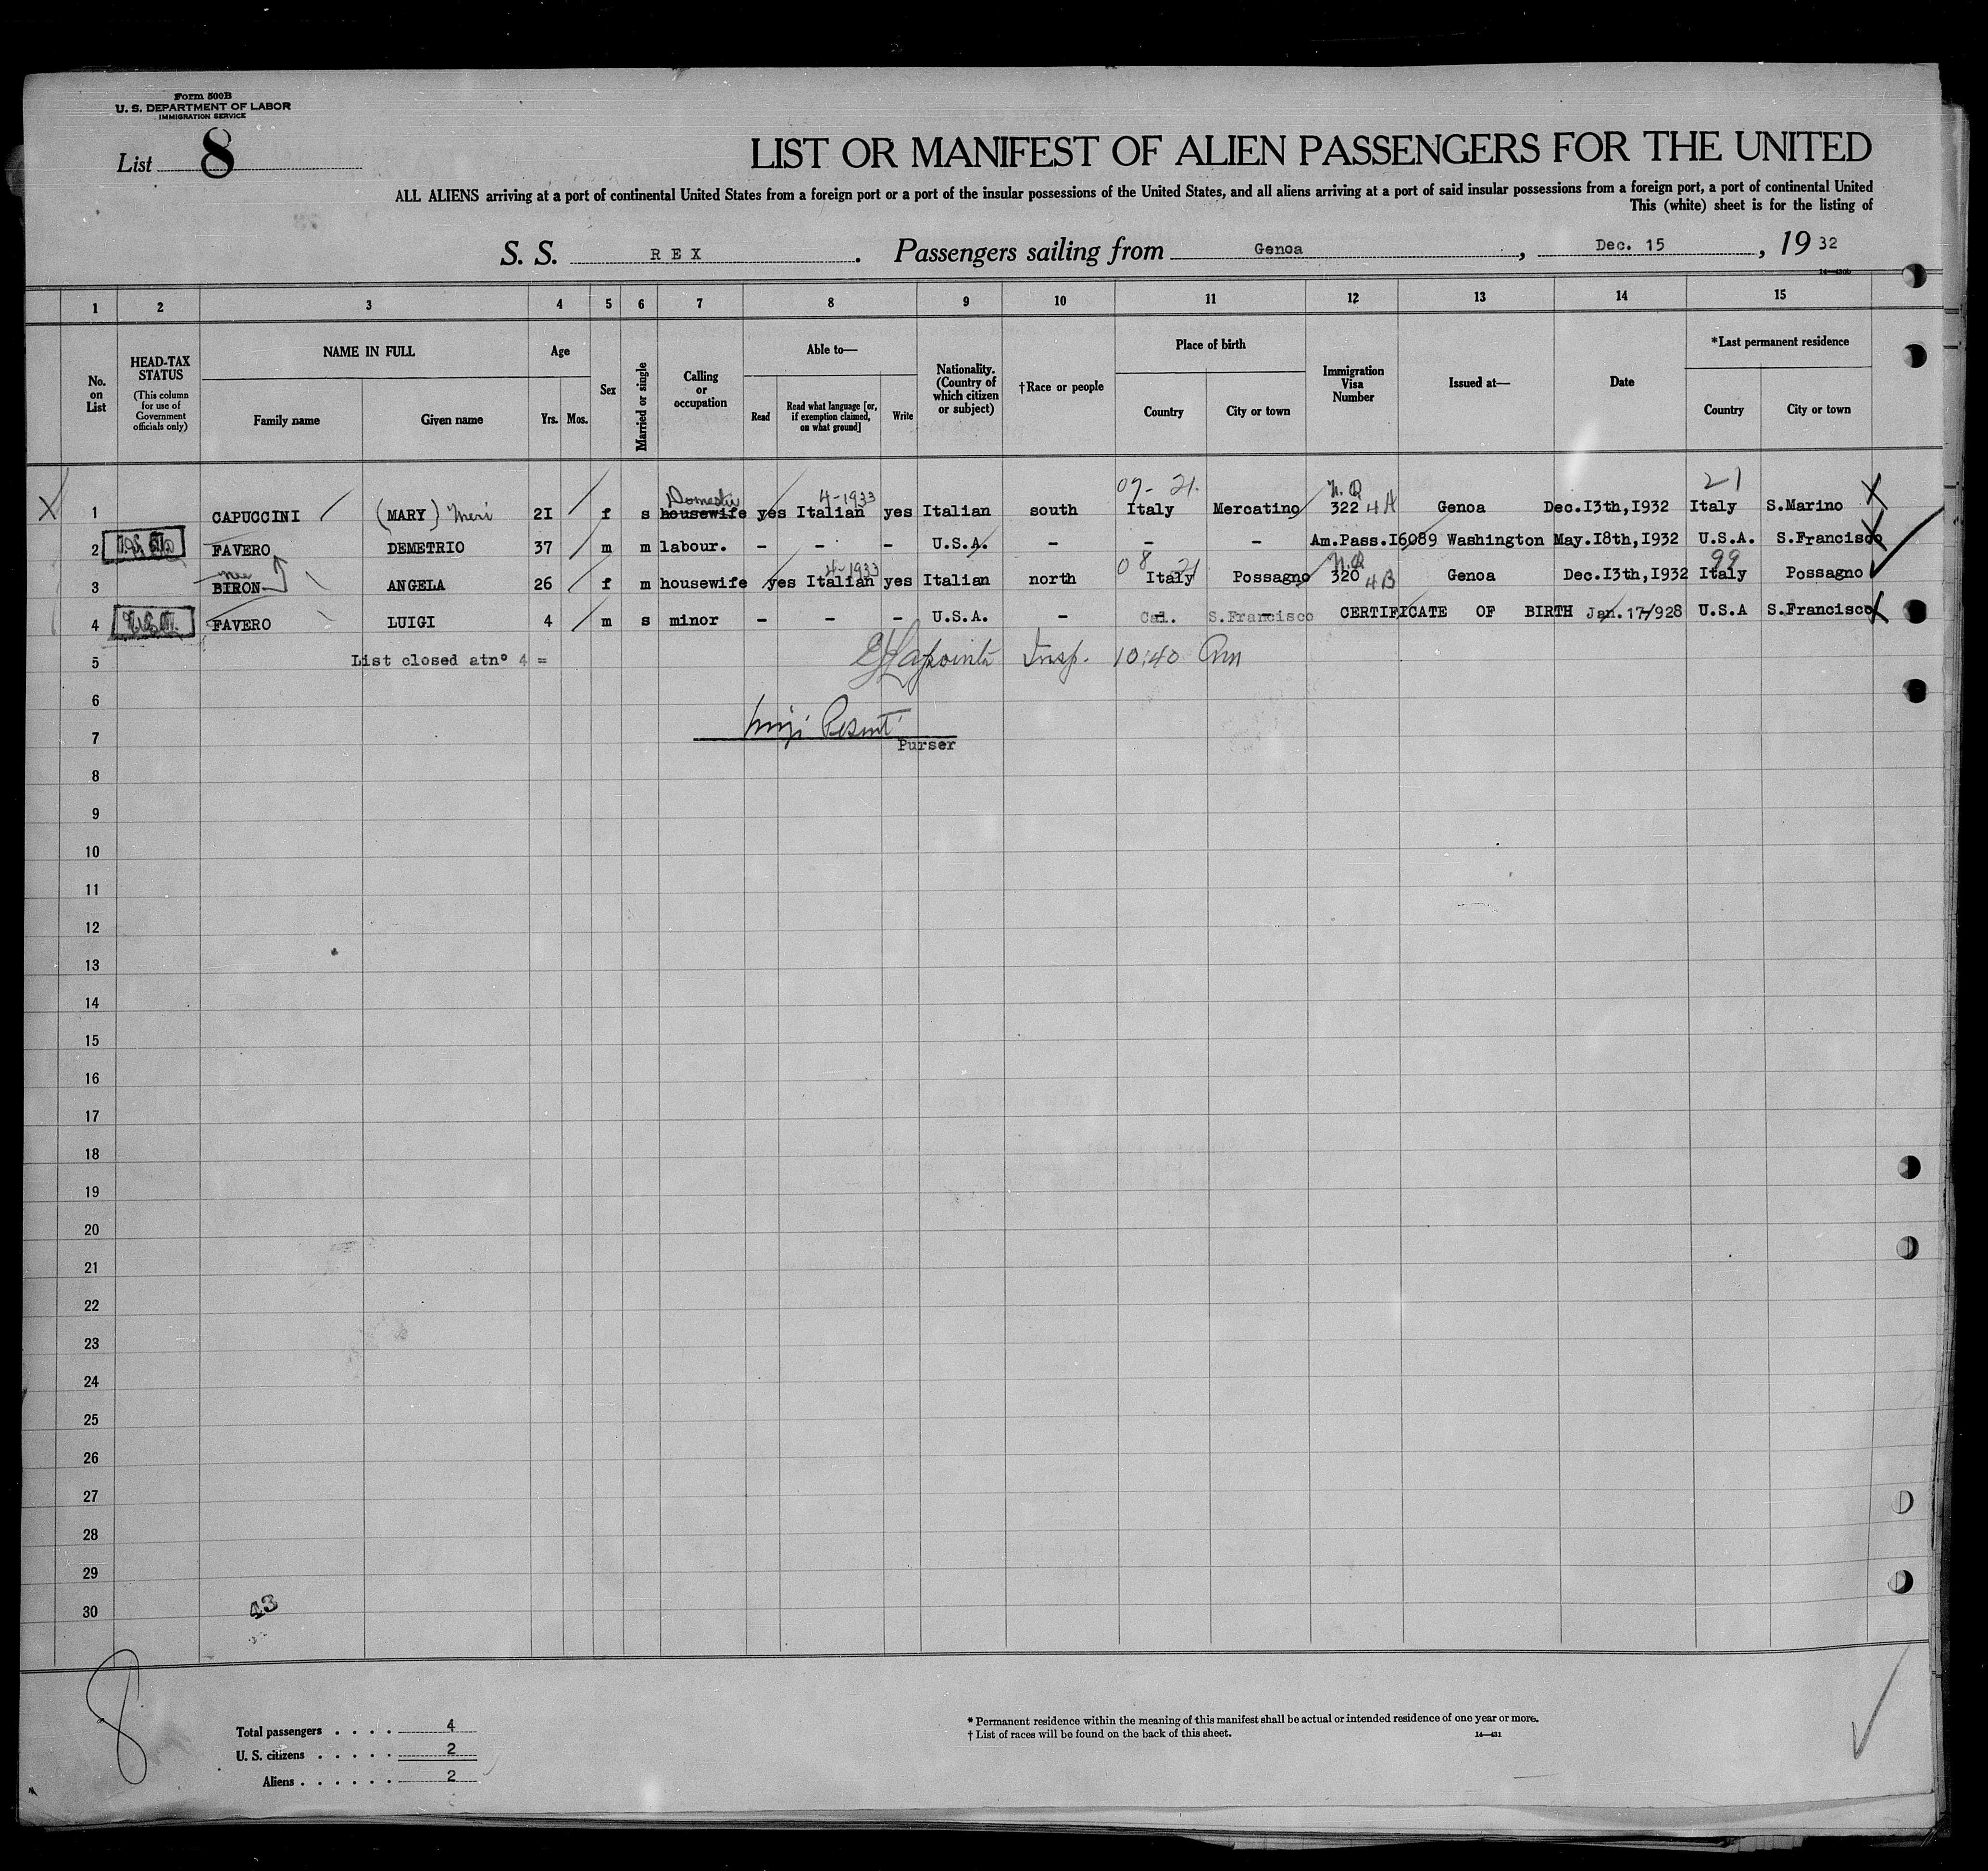 Form 500B
U. S. DEPARTMENT OF LABOR
IMMIGRATION SERVICE
List 8
LIST OR MANIFEST OF ALIEN PASSENGERS FOR THE UNITED
ALL ALIENS arriving at a port of continental United States from a foreign port or a port of the insular possessions of the United States, and all aliens arriving at a port of said insular possessions from a foreign port, a port of continental United
This (white) sheet is for the listing of
S. S. REX. Passengers sailing from Genoa, Dec. 15, 1932
14—430b
1 2 3 4 5 6 7 8 9 10 11 12 13 14 15
No. on List
HEAD-TAX STATUS
(This column for use of Government officials only)
NAME IN FULL
Family name Given name
Age
Yrs. Mos.
Sex
Married or single
Calling or occupation
Able to—
Read Read what language [or, if exemption claimed, on what ground] Write
Nationality. (Country of which citizen or subject)
†Race or people
Place of birth
Country City or town
Immigration Visa Number
Issued at—
Date
*Last permanent residence
Country City or town
Domestic 4-1933 07- 21. N.Q 21
X 1 CAPUCCINI (MARY) Meri 2I f s housewife yes Italian yes Italian south Italy Mercatino 322 4A Genoa Dec.I3th,I932 Italy S.Marino X
2 FAVERO DEMETRIO 37 m m labour. - - - U.S.A. - - - Am.Pass.I6089 Washington May.I8th,I932 U.S.A. S.Francisco X
nee 4-1933 08 21 N.Q 99
3 BIRON ANGELA 26 f m housewife yes Italian yes Italian north Italy Possagno 320 4B Genoa Dec.I3th,I932 Italy Possagno
4 U.S.A. FAVERO LUIGI 4 m s minor - - - U.S.A. - Cal. S.Francisco CERTIFICATE OF BIRTH Jan.17-/928 U.S.A S.Francisco X
5 List closed atnº 4 = Lapointe Insp. 10:40 Am
6
7 Luigi Resmt
Purser
8
9
10
11
12
13
14
15
16
17
18
19
20
21
22
23
24
25
26
27
28
29
30
43
8
Total passengers . . . . 4
U. S. citizens . . . . . 2
Aliens . . . . . . 2
* Permanent residence within the meaning of this manifest shall be actual or intended residence of one year or more.
† List of races will be found on the back of this sheet.
14—431